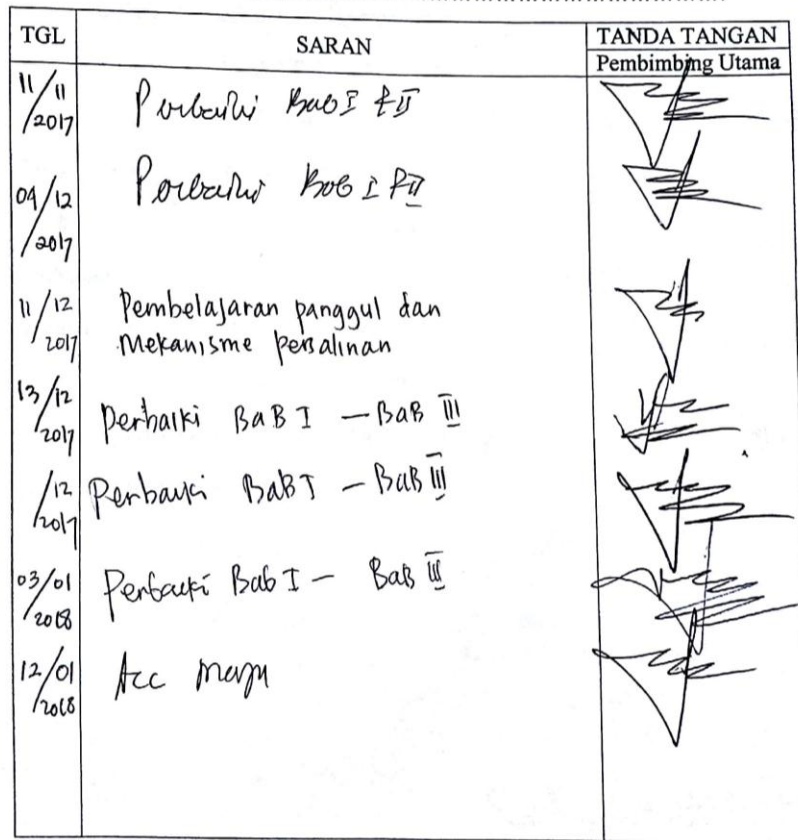 TGL SARAN TANDA TANGAN
Pembimbing Utama
11/11/2017 Perbaiki Bab I & II
04/12/2017 Perbaiki Bab I & II
11/12/2017 Pembelajaran panggul dan
Mekanisme persalinan
13/12/2017 Perbaiki BaB I — BaB III
/12/2017 Perbaiki BaB I — BaB III
03/01/2018 Perbaiki Bab I — Bab III
12/01/2018 Acc maju